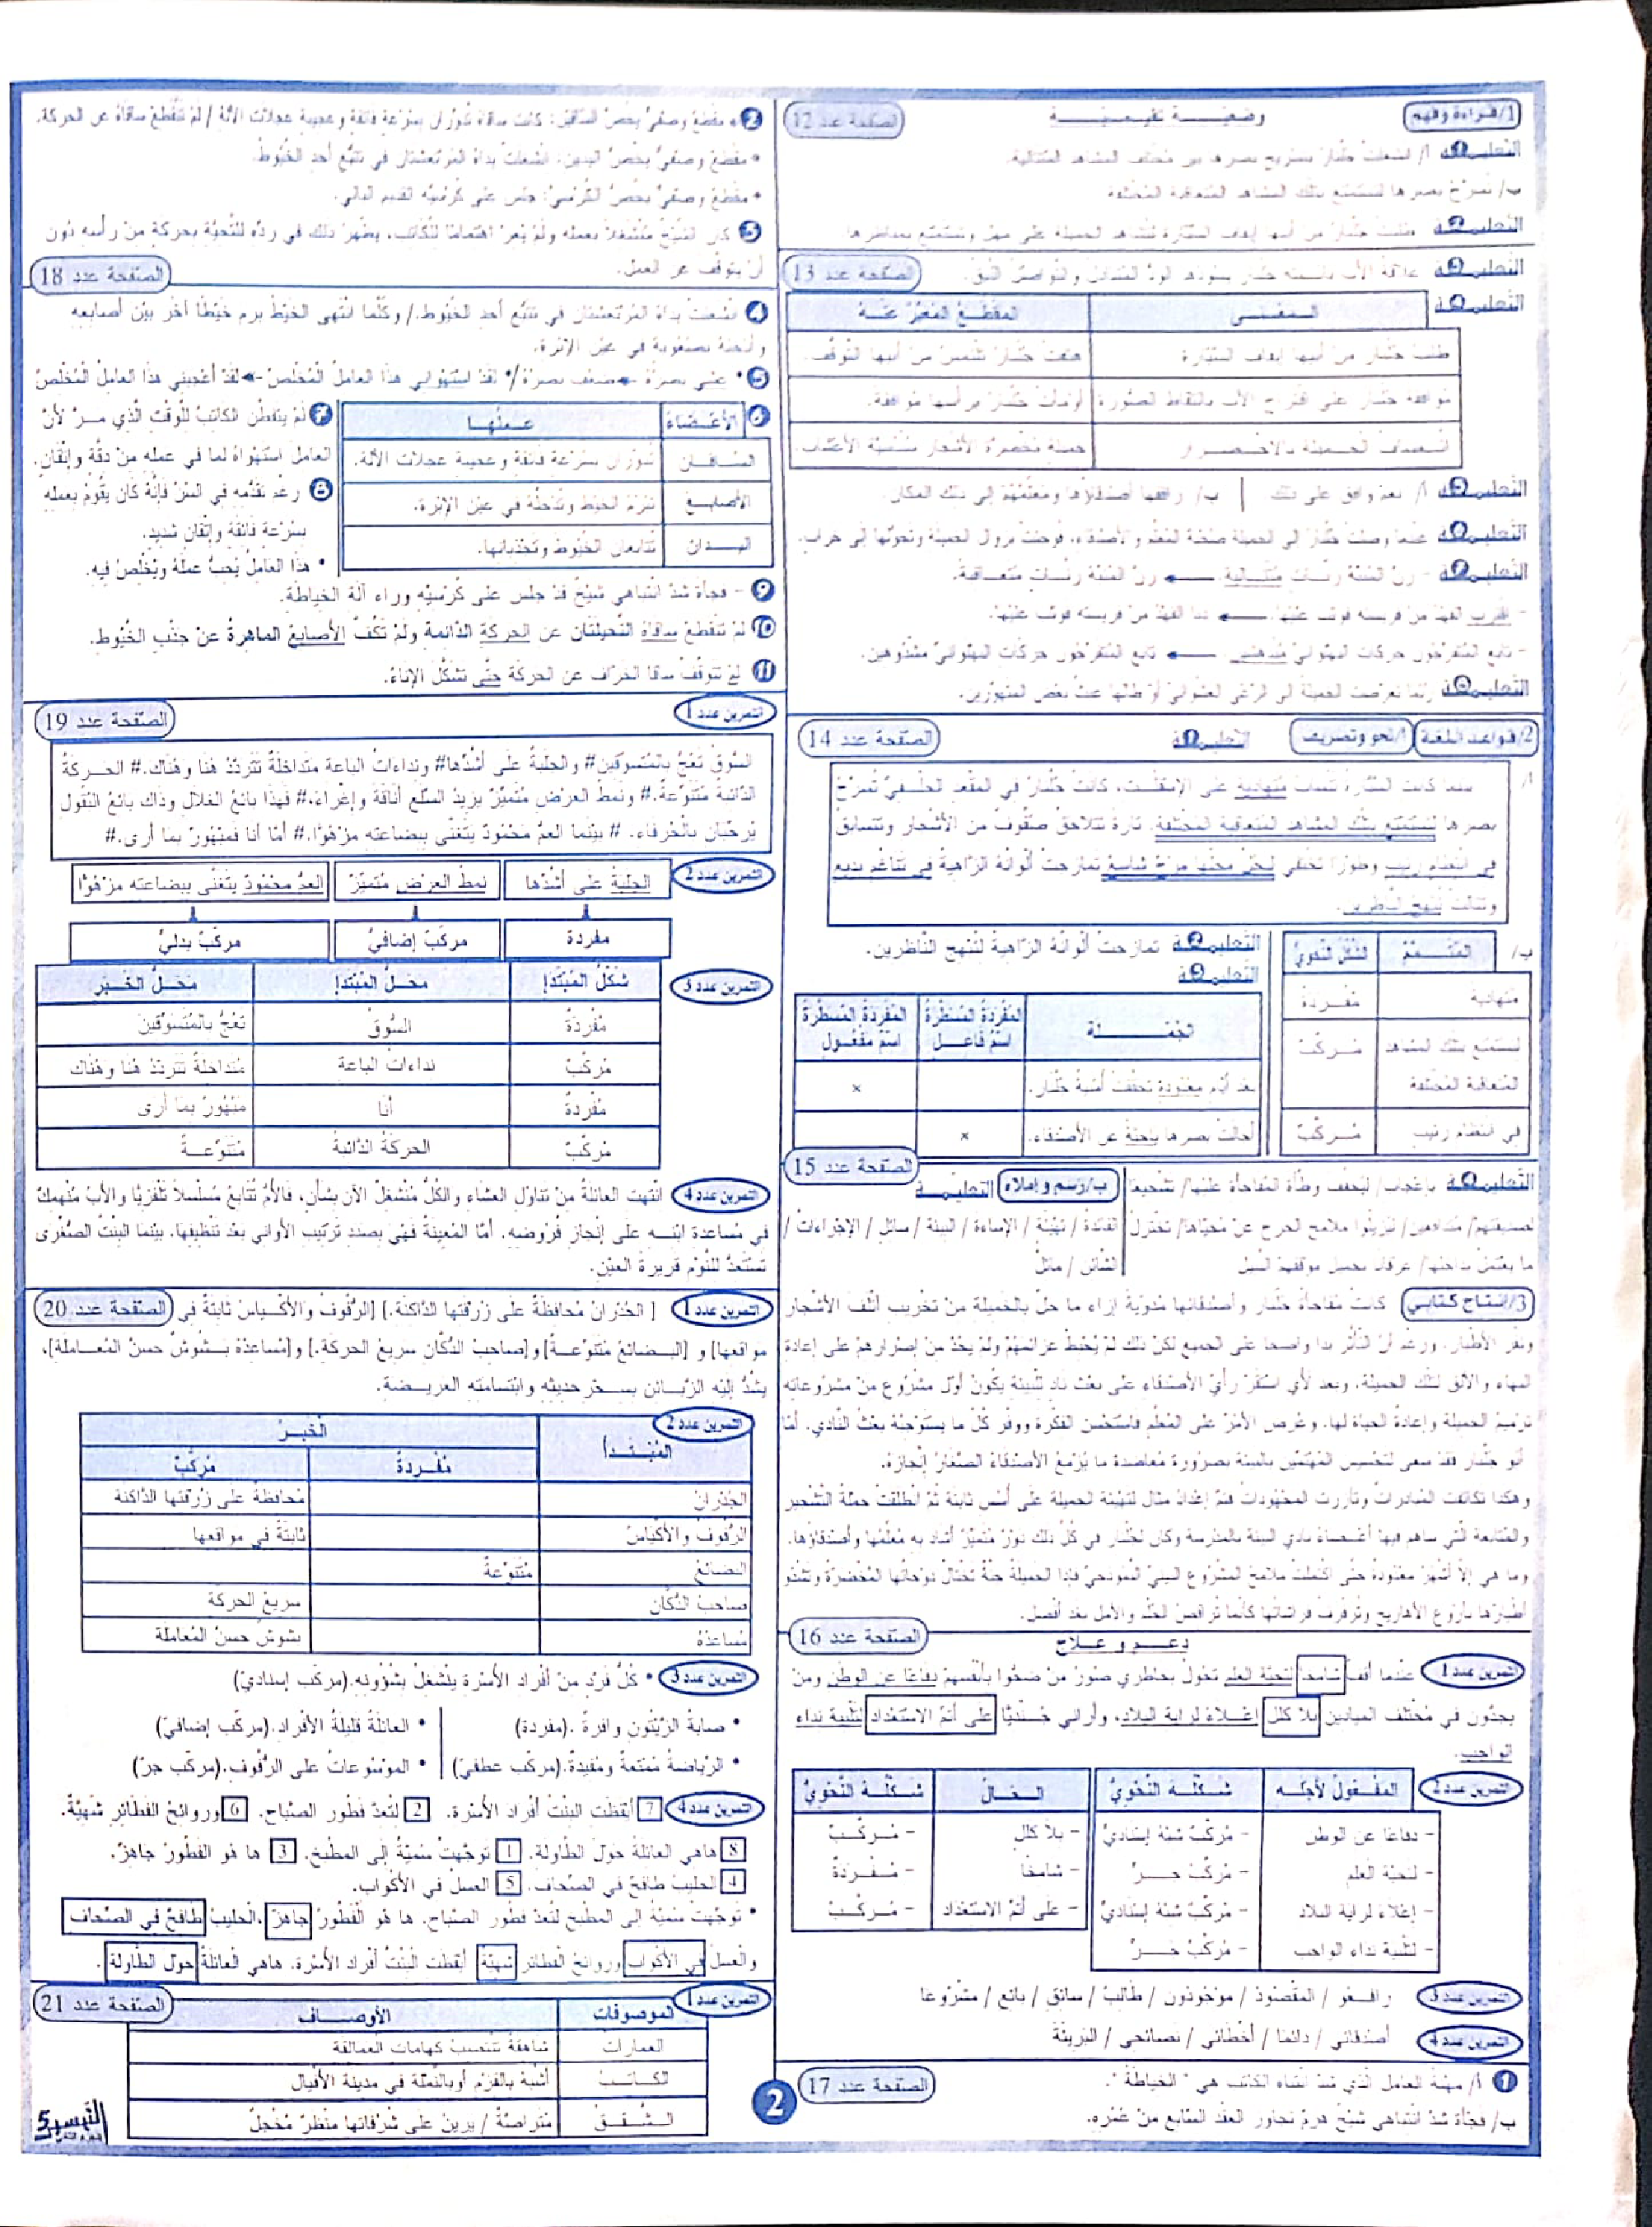 1/قراءة وفهم
وضعيـــة تقييميـــة
الصفحة عدد 12
التعليمـة أ/ انشغلت جلنار بتسريح بصرها بين مختلف المشاهد المتتالية.
ب/ تسرح بصرها لتستمتع بتلك المشاهد المتعاقبة المختلفة
التعليمـة طلبت جلنار من أبيها إيقاف السيارة لتشاهد الخميلة على مهل وتستمتع بمناظرها
التعليمـة علاقة الأب بابنته جلنار يسودها الود المتبادل والتواصل
الصفحة عدد 13
التعليمـة
المعنـــى
المقطع المعبر عنه
طلبت جلنار من أبيها إيقاف السيارة
هتفت جلنار تلتمس من أبيها التوقف.
موافقة جلنار على اقتراح الأب بالتقاط الصورة
أومأت جلنار برأسها موافقة.
خميلة مخضرة الأشجار سندسية الأعشاب.
التعليمـة أ/ نعم وافق على ذلك
ب/ رافقها أصدقاؤها ومعلمهم إلى ذلك المكان.
التعليمـة عندما وصلت جلنار إلى الخميلة صحبة المعلم والأصدقاء، فوجئت بزوال الخميلة وتحولها إلى خراب.
التعليمـة - رن المنبه رنـات متتـالية. رن المنبه رنـات متعـاقبة.
- اقترب الفهد من فريسته فوثب عليها. دنا الفهد من فريسته فوثب عليها.
- تابع المتفرجون حركات البهلواني تابع المتفرجون حركات البهلواني مشدوهين.
التعليمـة ربما تعرضت الخميلة إلى الرعي العشوائي أو طالها عبث بعض المتهورين.
2/قواعد اللغة
1/نحو وتصريف
التعليمـة
الصفحة عدد 14
أ/
بينما كانت السيارة تنساب متهادية على الإسفلت، كانت جلنار في المقعد الخلفي تسرح
بصرها لتستمتع بتلك المشاهد المتعاقبة المختلفة. تارة تتلاحق صفوف من الأشجار وتتسابق
في انتظام رتيب وطورا تختفي لتحل محلها مروج شاسعة تمازجت ألوانها الزاهية في تناغم بديع
ب/
المتـــمم
الشكل النحوي
متهادية
مفـردة
لتستمتع بتلك المشاهد المتعاقبة المختلفة
مـركب
في انتظام رتيب
مـركب
التعليمـة تمازجت ألوانه الزاهية لتبهج الناظرين.
التعليمـة
الجمــــلة
المفردة المسطرة اسم فاعـل
المفردة المسطرة اسم مفعول
بعد أيام معدودة تحققت أمنية جلنار.
×
أجالت بصرها باحثة عن الأصدقاء.
×
الصفحة عدد 15
التعليمـة بإعجاب/ ليخفف وطأة المفاجأة عليها/ تشجيعا
لصديقتهم/ متدافعين/ ليزيلوا ملامح الحرج عن محياها/ تختزل
ما يعتمل بداخلها/ عرفانا بجميل موقفهم النبيل
ب/رسم وإملاء
التعليمـة
الفائدة / تهيئة / الإساءة / البيئة / سائل / الإجراءات /
الشائن / مائل
3/إنتاج كتابي
كانت مفاجأة جلنار وأصدقائها مدوية إزاء ما حل بالخميلة من تخريب أتلف الأشجار
ونفر الأطيار. ورغم أن التأثر بدا واضحا على الجميع لكن ذلك لم يحبط عزائمهم ولم يحد من إصرارهم على إعادة
البهاء والألق لتلك الخميلة. وبعد لأي استقر رأي الأصدقاء على بعث ناد للبيئة يكون أول مشروع من مشروعاته
ترميم الخميلة وإعادة الحياة لها. وعرض الأمر على المعلم فاستحسن الفكرة ووفر كل ما يستوجبه بعث النادي. أما
أبو جلنار فقد سعى لتحسيس المهتمين بالبيئة بضرورة معاضدة ما يزمع الأصدقاء الصغار إنجازه.
وهكذا تكاتفت المبادرات وتآزرت المجهودات فتم إعداد مثال لتهيئة الخميلة على أسس ثابتة ثم انطلقت حملة التشجير
والمتابعة التي ساهم فيها أعضاء نادي البيئة بالمدرسة وكان لجلنار في كل ذلك دور متميز أشاد به معلمها وأصدقاؤها.
وما هي إلا أشهر معدودة حتى اكتملت ملامح المشروع البيئي النموذجي فإذا الخميلة جنة تختال دوحاتها المخضرة وتشدو
أطيارها بأروع الأهازيج وترفرف فراشاتها كأنما تراقص الغد والأمل بغد أفضل.
الصفحة عدد 16
دعـم وعـلاج
التمرين عدد 1 عندما أقف شامخا لتحية العلم تجول بخاطري صور من ضحوا بأنفسهم دفاعا عن الوطن ومن
يجدون في مختلف الميادين بلا كلل إعلاء لراية البلاد، وأراني جنديا على أتم الاستعداد لتلبية نداء
الواجب.
التمرين عدد 2
المفعول لأجله
شكله النحوي
الحال
شكله النحوي
- دفاعا عن الوطن
- مركب شبه إسنادي
- بلا كلل
- مـركب
- لتحية العلم
- مركب جـر
- شامخا
- مفـردة
- إعلاء لراية البلاد
- مركب شبه إسنادي
- على أتم الاستعداد
- مـركب
- لتلبية نداء الواجب
- مركب جـر
التمرين عدد 3 رافـعو / المقصود / موجودون / طالب / سائق / بائع / مشروعا
التمرين عدد 4 أصدقائي / دائما / أخطائي / نصائحي / البريئة
الصفحة عدد 17
1 أ/ مهنة العامل الذي شد انتباه الكاتب هي " الخياطة ".
ب/ فجأة شد انتباهي شيخ هرم تجاوز العقد السابع من عمره.
2 • مقطع وصفي يخص الساقين: كانت ساقاه تدوران بسرعة فائقة وعجيبة عجلات الآلة / لم تنقطع ساقاه عن الحركة.
• مقطع وصفي يخص اليدين: انشغلت يداه المرتعشتان في تتبع أحد الخيوط.
• مقطع وصفي يخص الكرسي: جلس على كرسيه القديم البالي.
3 كان الشيخ منشغلا بعمله ولم يعر اهتماما للكاتب. يظهر ذلك في رده للتحية بحركة من رأسه دون
أن يتوقف عن العمل.
الصفحة عدد 18
4 انشغلت يداه المرتعشتان في تتبع أحد الخيوط./ وكلما انتهى الخيط برم خيطا آخر بين أصابعه
وأدخله بصعوبة في عين الإبرة.
5 • بصره ضعف بصره/ • لقد استهواني هذا العامل المخلص لقد أعجبني هذا العامل المخلص
6
الأعضاء
عملها
الساقان
تدوران بسرعة فائقة وعجيبة عجلات الآلة.
الأصابع
تبرم الخيط وتدخله في عين الإبرة.
اليـدان
تتابعان الخيوط وتجذبانها.
7 لم يتفطن الكاتب للوقت الذي مـر لأن
العامل استهواه لما في عمله من دقة وإتقان.
8 رغم تقدمه في السن فإنه كان يقوم بعمله
بسرعة فائقة وإتقان شديد.
• هذا العامل يحب عمله ويخلص فيه.
9 - فجأة شد انتباهي شيخ قد جلس على كرسيه وراء آلة الخياطة.
10 لم تنقطع ساقاه النحيلتان عن الحركة الدائمة ولم تكف الأصابع الماهرة عن جذب الخيوط.
11 لم تتوقف ساقا الخزاف عن الحركة حتى تشكل الإناء.
الصفحة عدد 19
التمرين عدد 1
السوق تعج بالمتسوقين# والجلبة على أشدها# ونداءات الباعة متداخلة تتردد هنا وهناك.# الحـركة
الدائبة متنوعة.# ونمط العرض متميز يزيد السلع أناقة وإغراء.# فهذا بائع الغلال وذاك بائع البقول
يرحبان بالحرفاء. # بينما العم محمود يتغنى ببضاعته مزهوا.# أما أنا فمبهور بما أرى.#
التمرين عدد 2
الجلبة على أشدها
نمط العرض متميز
العم محمود يتغنى ببضاعته مزهوا
مفردة
مركب إضافي
مركب بدلي
التمرين عدد 3
شكل المبتدإ
محل المبتدإ
محل الخبر
مفردة
السوق
تعج بالمتسوقين
مركب
نداءات الباعة
متداخلة تتردد هنا وهناك
مفردة
أنا
مبهور بما أرى
مركب
الحركة الدائبة
متنوعـة
التمرين عدد 4 انتهت العائلة من تناول العشاء والكل منشغل الآن بشأن، فالأم تتابع مسلسلا تلفزيا والأب منهمك
في مساعدة ابنـه على إنجاز فروضه. أما المعينة فهي بصدد ترتيب الأواني بعد تنظيفها. بينما البنت الصغرى
تستعد للنوم قريرة العين.
التمرين عدد 1 [ الجدران محافظة على زرقتها الداكنة.] [الرفوف والأكياس ثابتة في
الصفحة عدد 20
مواقعها] و [البـضائع متنوعـة] و[صاحب الدكان سريع الحركة.] و[مساعده بـشوش حسن المعـاملة]،
يشد إليه الزبـائن بسـحر حديثه وابتسامته العريـضة.
التمرين عدد 2
المبتـدأ
الخبـر
مفـردة
مركب
الجدران
محافظة على زرقتها الداكنة
الرفوف والأكياس
ثابتة في مواقعها
البضائع
متنوعة
صاحب الدكان
سريع الحركة
مساعده
بشوش حسن المعاملة
التمرين عدد 3 • كل فرد من أفراد الأسرة ينشغل بشؤونه.(مركب إسنادي)
• صابة الزيتون وافرة .(مفردة)
• العائلة قليلة الأفراد.(مركب إضافي)
• الرياضة ممتعة ومفيدة.(مركب عطفي)
• الموسوعات على الرفوف.(مركب جر)
التمرين عدد 4 7 أيقظت البنت أفراد الأسرة. 2 لتعد فطور الصباح. 6 وروائح الفطائر شهية.
8 هاهي العائلة حول الطاولة. 1 توجهت سمية إلى المطبخ. 3 ها هو الفطور جاهز.
4 الحليب طافح في الصحاف. 5 العسل في الأكواب.
• توجهت سمية إلى المطبخ لتعد فطور الصباح. ها هو الفطور جاهز .الحليب طافح في الصحاف
والعسل في الأكواب وروائح الفطائر شهية أيقظت البنت أفراد الأسرة. هاهي العائلة حول الطاولة .
الصفحة عدد 21
التمرين عدد 1
الموصوفات
الأوصـــاف
العمارات
شاهقة تنتصب كهامات العمالقة
الكـاتـب
أشبه بالقزم أوبالنملة في مدينة الأفيال
الشـقق
متراصة / يرين على شرفاتها منظر مخجل
2